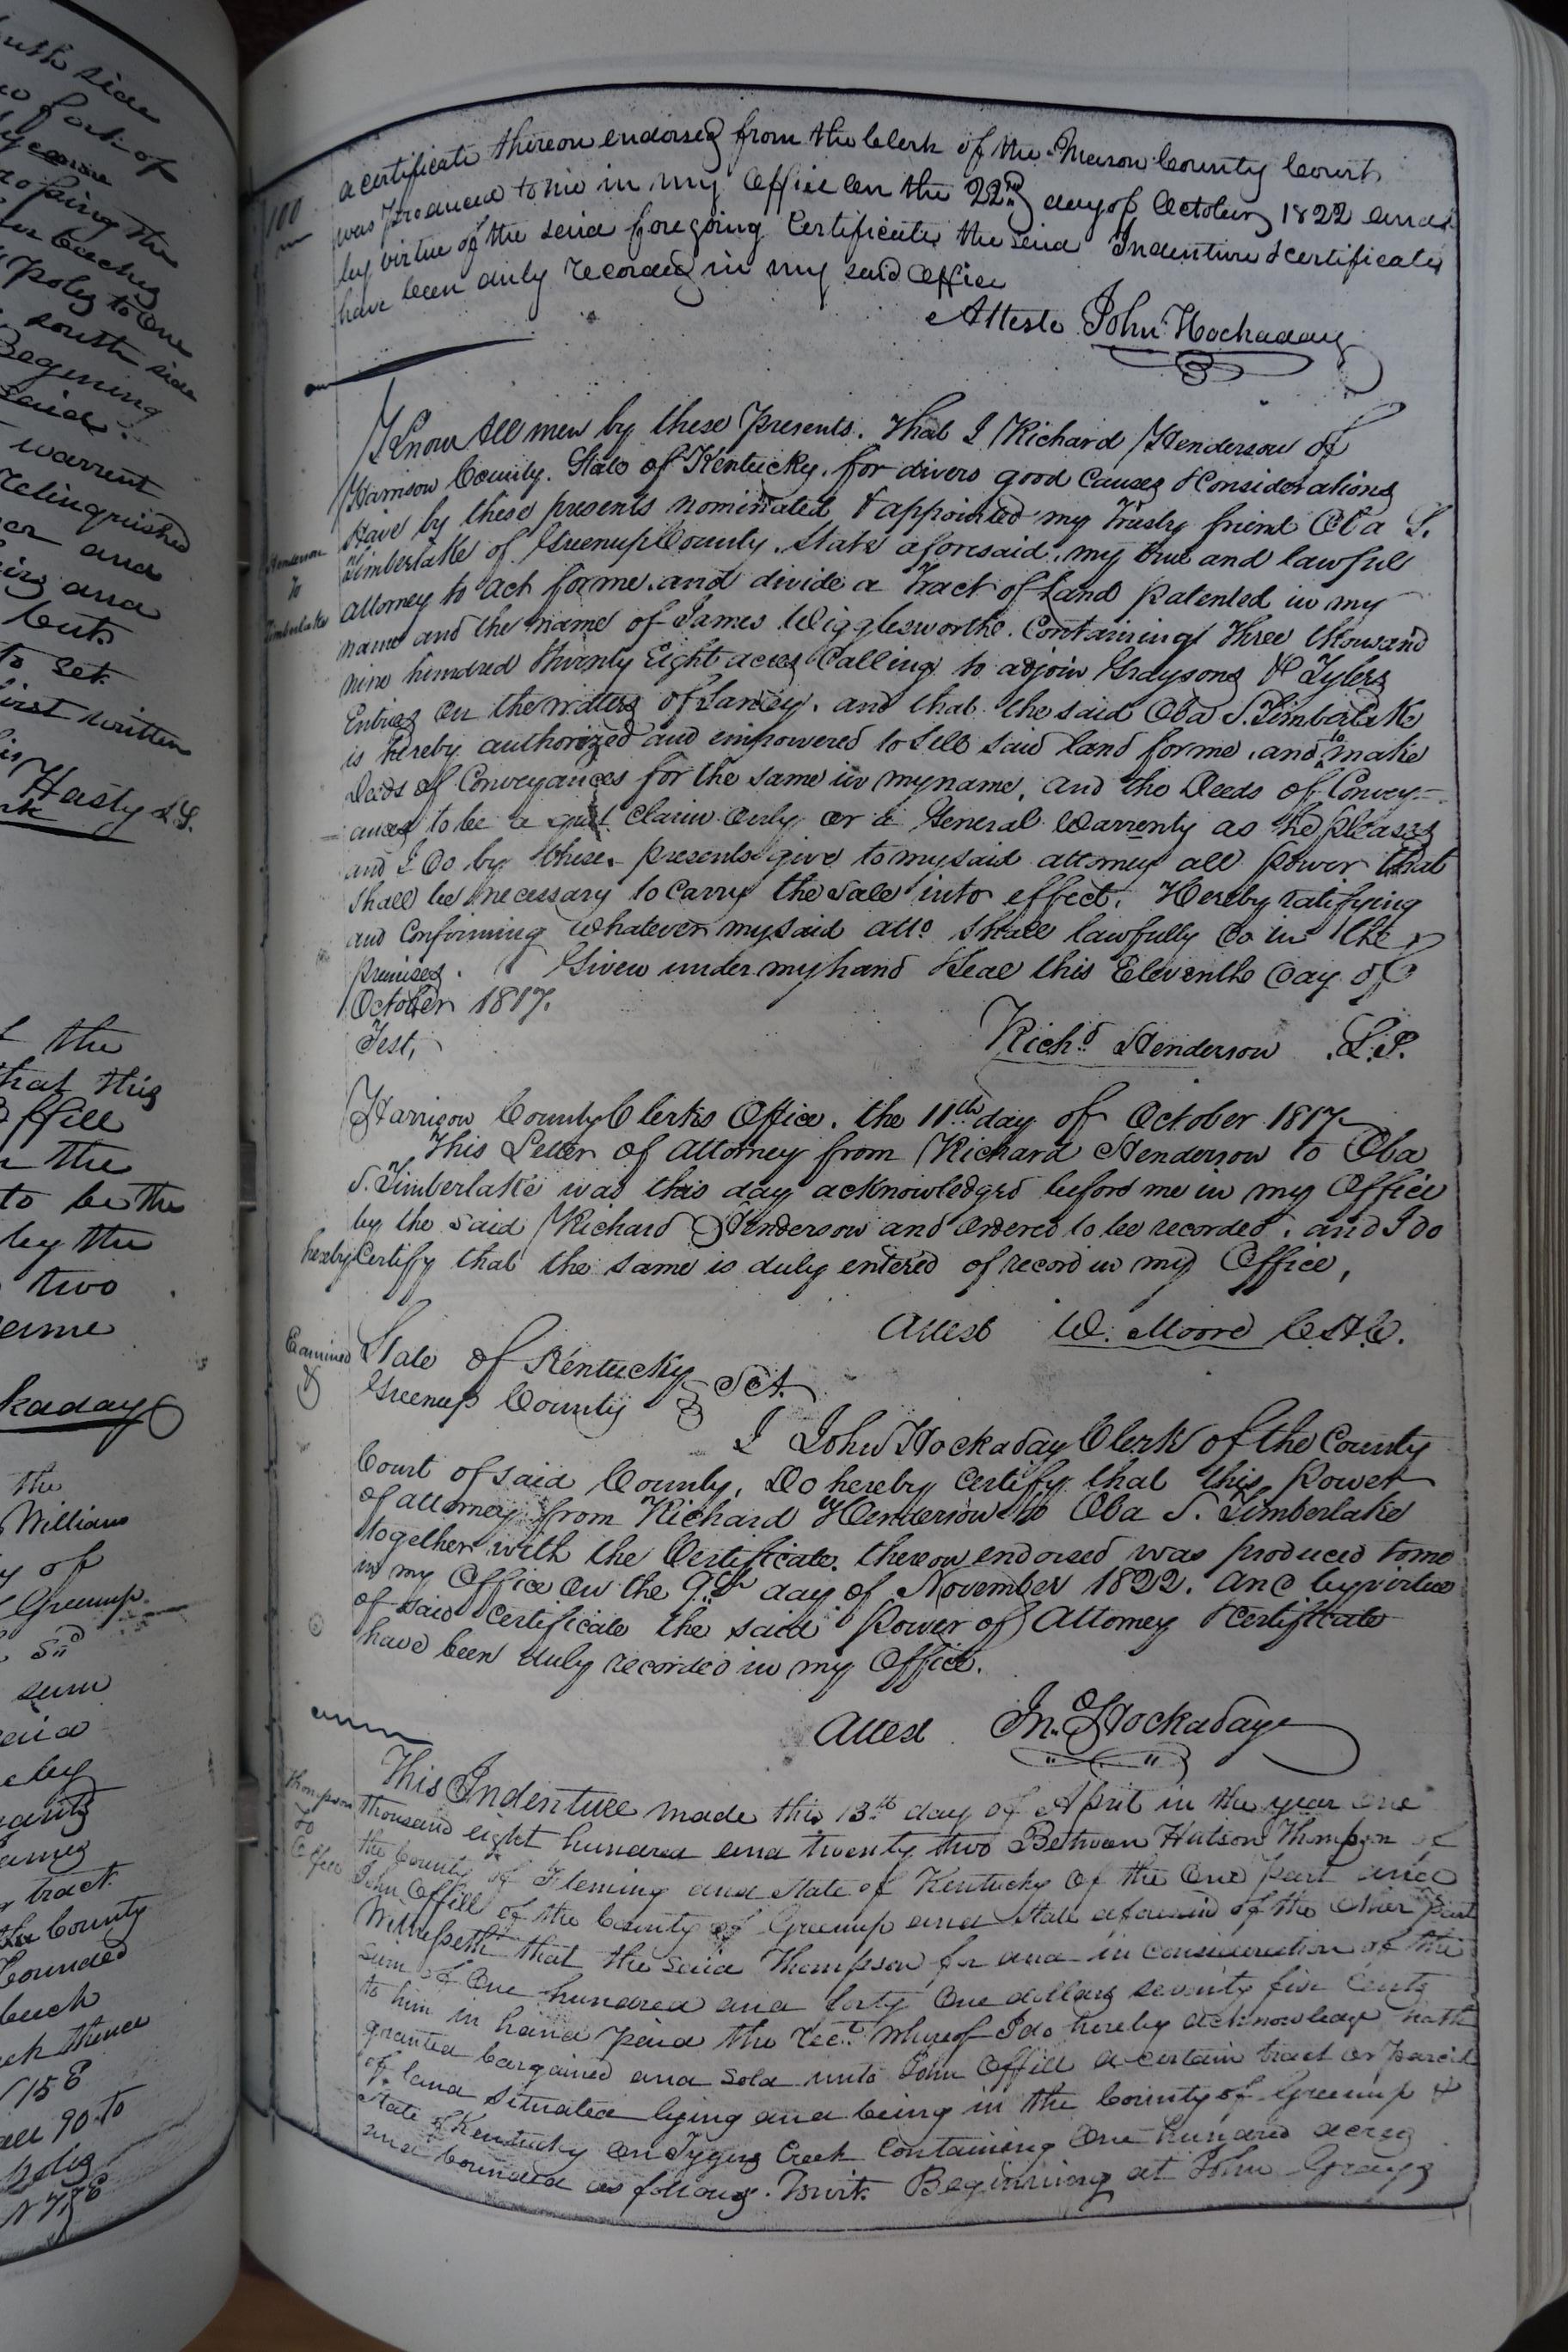 uth side
fork of
the
Poles to one
south side
Begining
said
warrent
relinquished
and
and
to set
first written
his
Hasty L.S.
rk
the
that this
Offill
the
to be the
by the
two
kaday
the
William
of
Greenup
sum
by
tract
the County
bounded
beech
thence
90 to
poles
100
a certificate thereon endorsed from the Clerk of the Mason County Court
was produced to me in my office on the 22nd day of October 1822 and
by virtue of the said foregoing Certificate the said Indenture & certificate
have been duly recorded in my said office
Atteste John Hockaday
Henderson
To
Timberlake
Know All men by these Presents. That I Richard Henderson of
Harrison County. State of Kentucky, for divers good Causes & Considerations
Have by these presents nominated & appointed my Trusty friend Oba S.
Timberlake of Greenup County. State aforesaid, my true and lawful
attorney to act for me. and divide a Tract of Land patented in my
name and the name of James Wigglesworth. Containing Three thousand
nine hundred Twenty Eight acres Calling to adjoin Graysons & Tylers
Entries on the waters of Sandy. and that the said Oba S. Timberlake
is hereby authorized and empowered to Sell said land for me, and to make
Deeds of Conveyances for the same in my name, and the Deeds of Convey=
ances to be a quit Claim Only or a General Warrenty as he pleases
and I do by these presents give to my said attorney all power that
shall be necessary to Carry the sale into effect, Hereby ratifying
and Confirming Whatever my said atto. shall lawfully do in the
premises. Given under my hand & Seal this Eleventh Day of
October 1817.
Test, Richd. Henderson L.S.
Harrison County Clerks Office. the 11th day of October 1817
This Letter of attorney from Richard Henderson to Oba
S. Timberlake was this day acknowledged before me in my Office
by the said Richard Henderson and ordered to be recorded, and I do
hereby Certify that the same is duly entered of record in my Office,
Attest W. Moore C.H.C.
Examined
State of Kentucky
Greenup County Sct.
I John Hockaday Clerk of the County
Court of said County, Do hereby Certify that this Power
of attorney from Richard Henderson to Oba S. Timberlake
together with the Certificate. thereon endorsed was produced to me
in my Office on the 9th day of November 1822. and by virtue
of said Certificate the said Power of Attorney & Certificate
have been duly recorded in my Office.
Attest Jno. Hockaday
Thompson
To
Offill
This Indenture made this 13th day of April in the year one
thousand eight hundred and twenty two Between Hutson Thompson of
the County of Fleming and State of Kentucky of the one part and
John Offill of the County of Greenup and State aforesaid of the other part
Witnesseth that the said Thompson for and in consideration of the
sum of One hundred and forty one dollars seventy five Cents
to him in hand paid the rect. whereof I do hereby acknowledge hath
granted bargained and sold unto John Offill a certain tract or parcel
of land situated lying and being in the County of Greenup &
State of Kentucky on Tygers Creek Containing One hundred acres
and bounded as follows. Towit. Beginning at John Grays